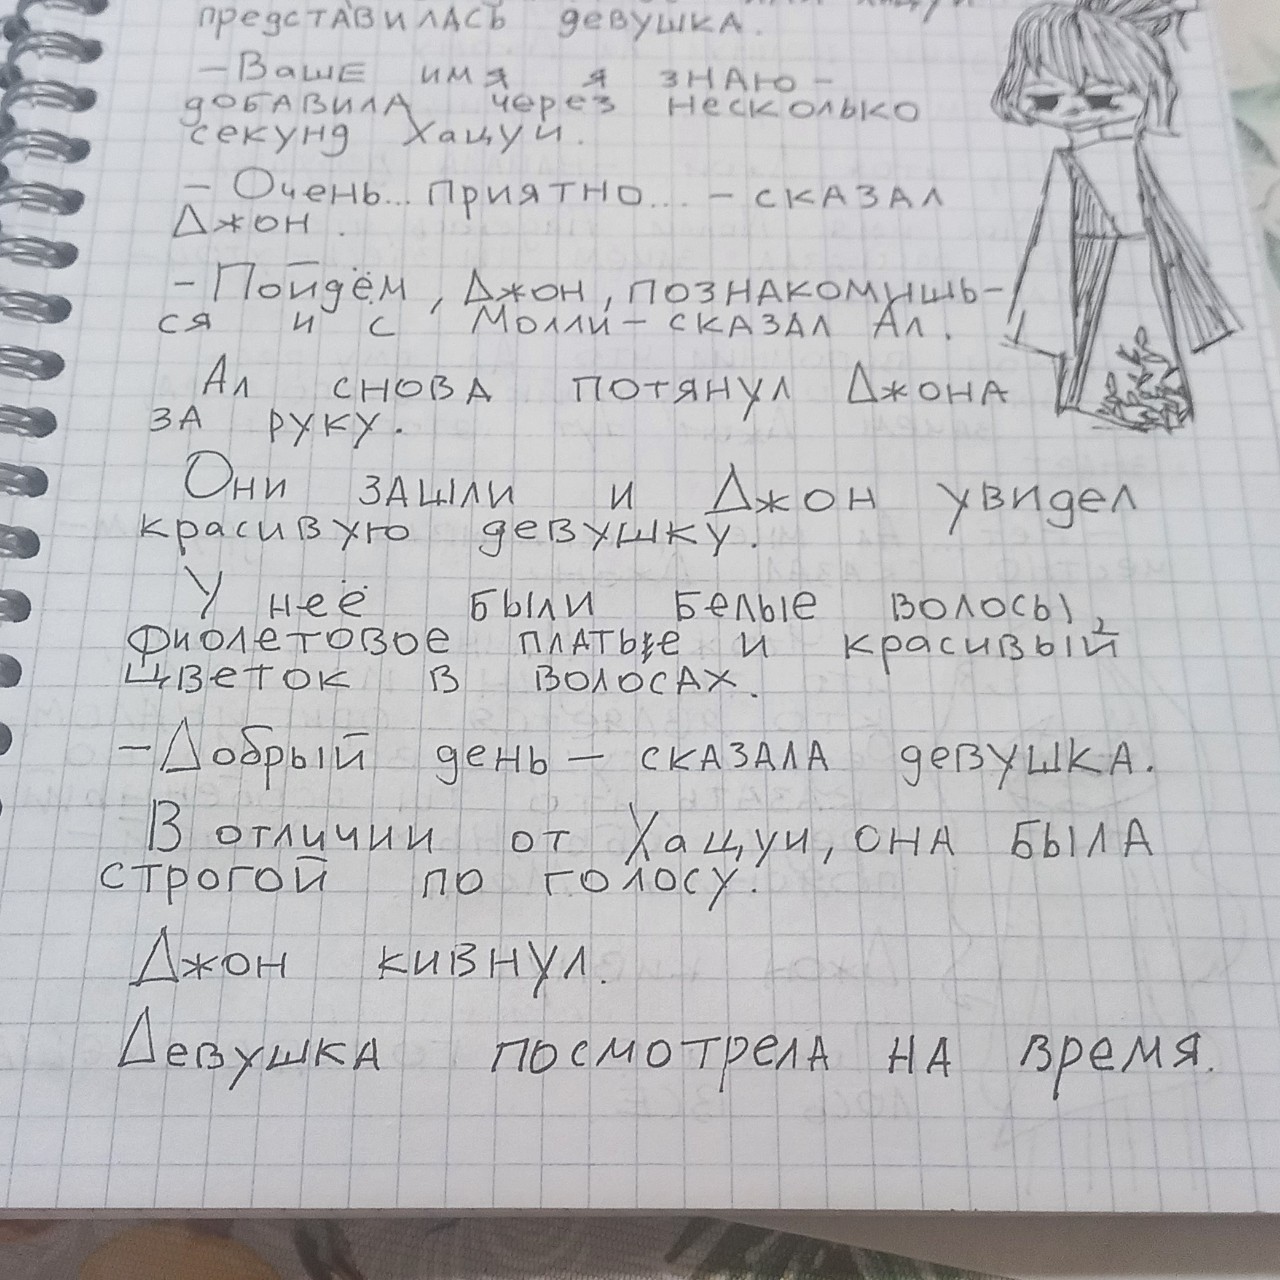 представилась девушка.
-Ваше имя я знаю-
добавила через несколько
секунд Хацуи.
- Очень... приятно... - сказал
Джон.
- Пойдём, Джон, познакомишь-
ся и с Молли- сказал Ал.
Ал снова потянул Джона
за руку.
Они зашли и Джон увидел
красивую девушку.
У неё были белые волосы,
фиолетовое платье и красивый
цветок в волосах.
-Добрый день- сказала девушка.
В отличии от Хацуи, она была
строгой по голосу.
Джон кивнул.
Девушка посмотрела на время.